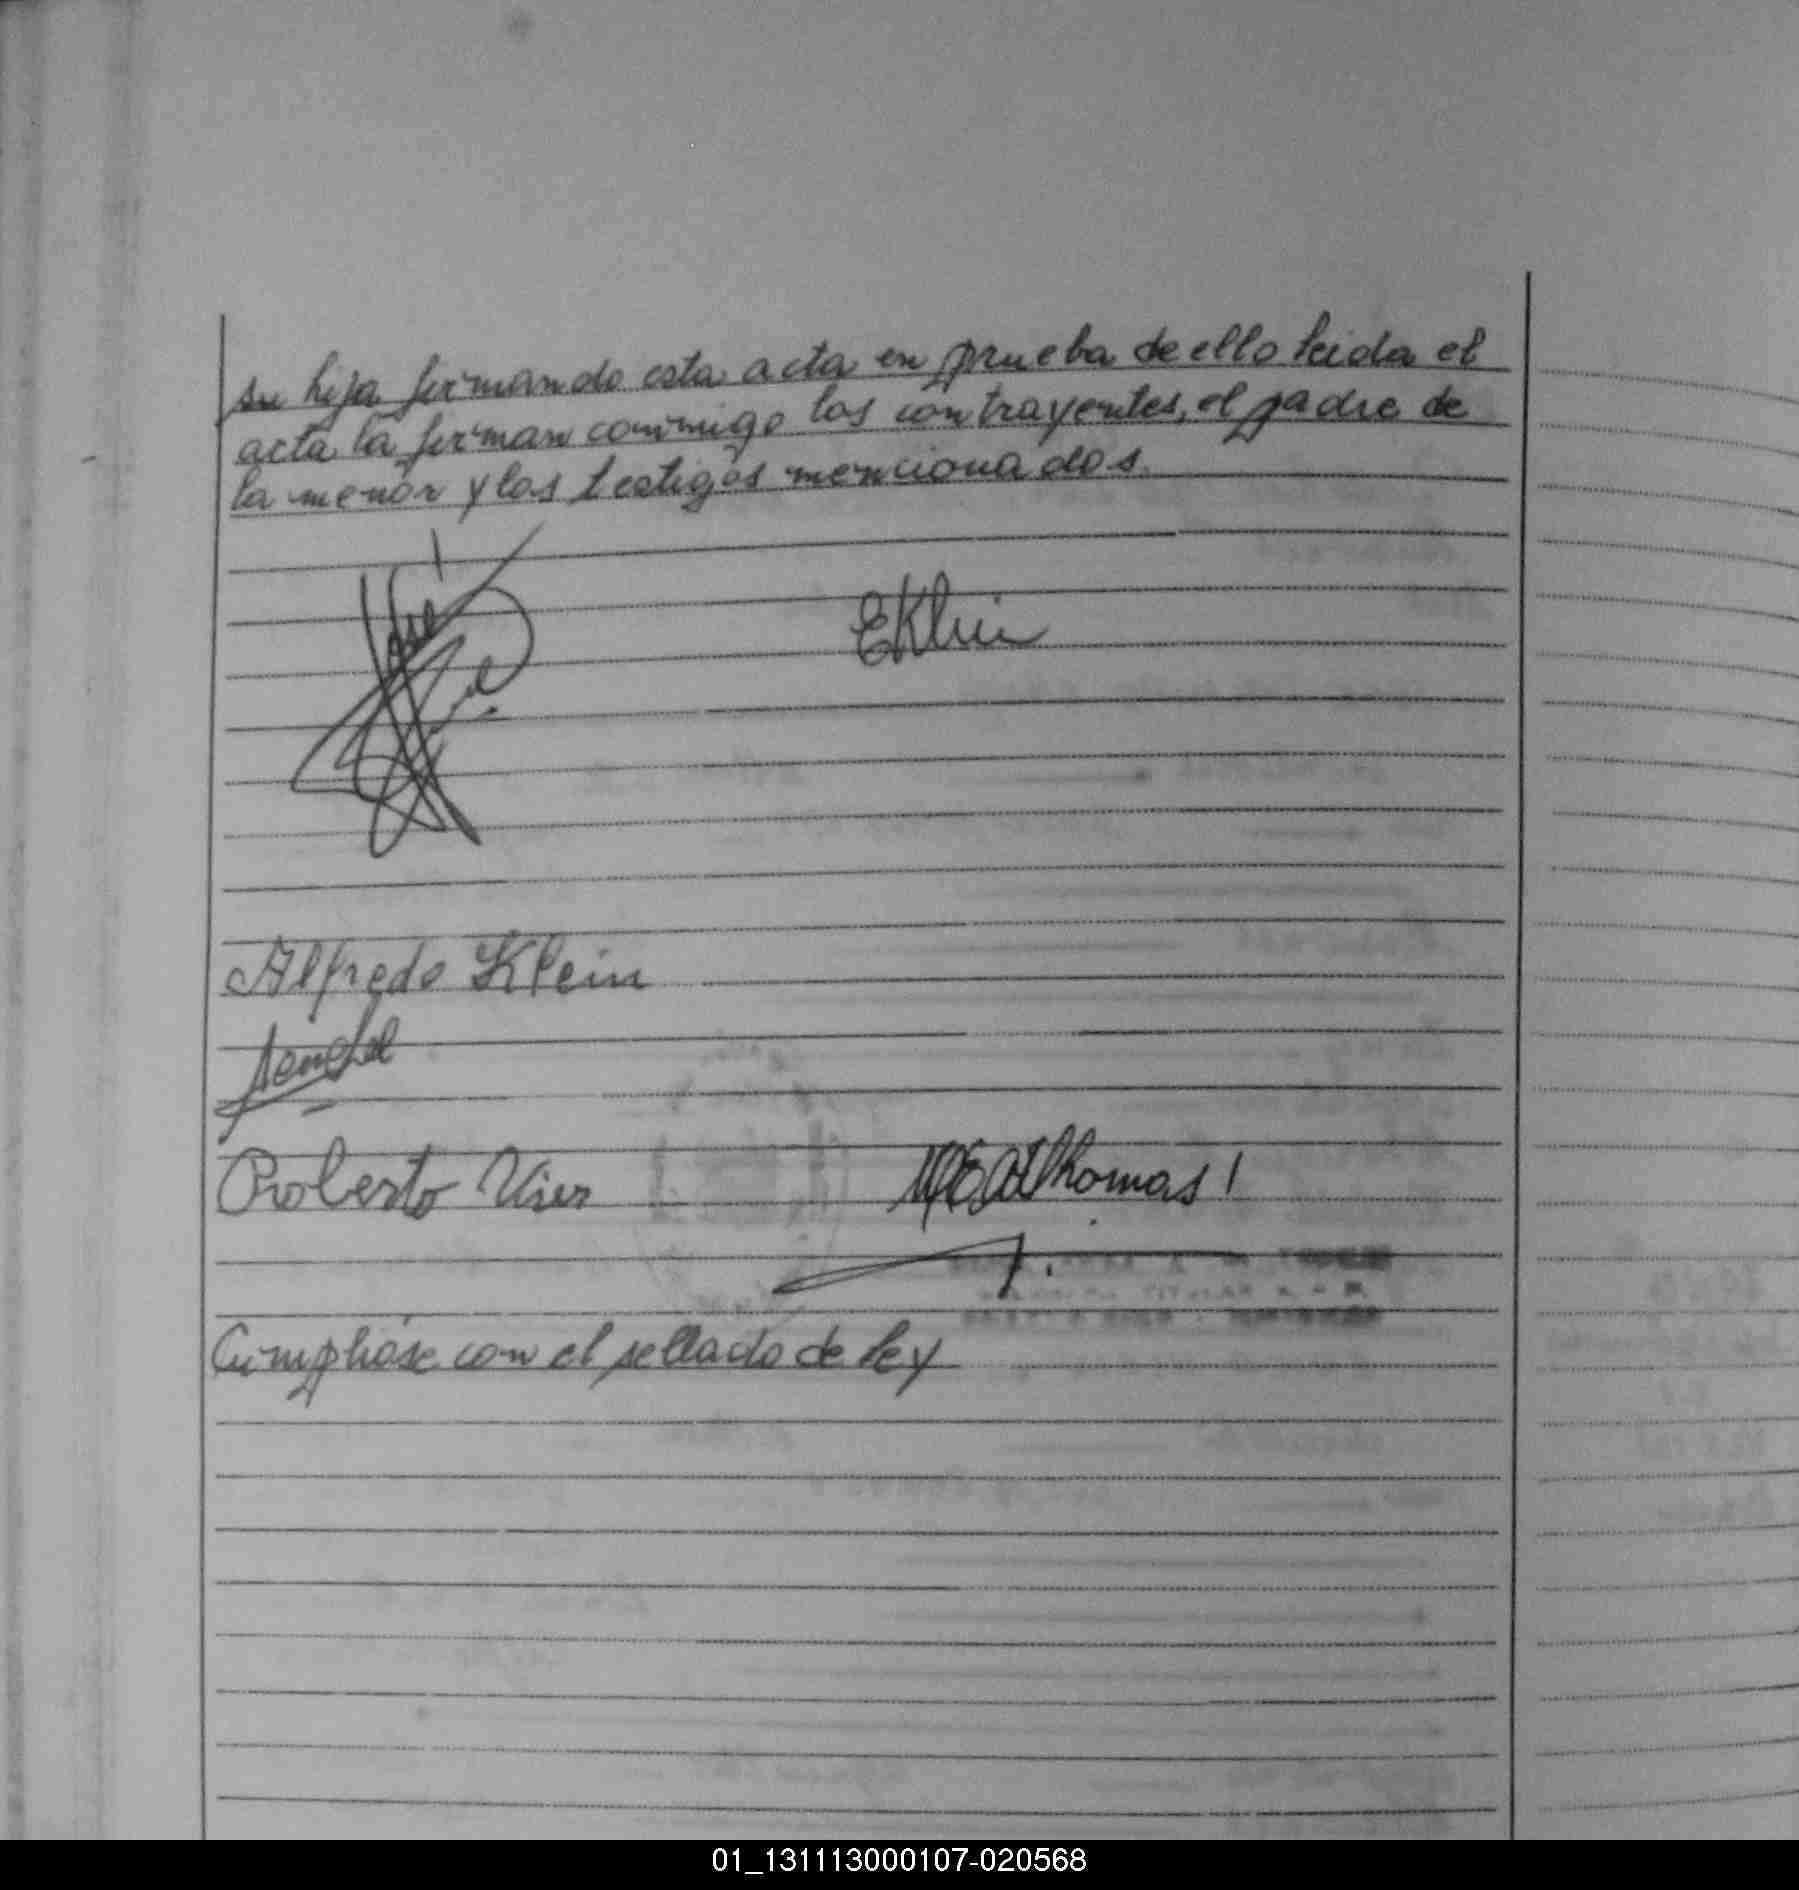 su hija firmando esta acta en prueba de ello leida el
acta la firman conmigo los contrayentes, el padre de
la menor y los testigos mencionados.
José
EKlein
Alfredo Klein
Roberto Vier
Thomas
Cumpliose con el sellado de ley
01_131113000107-020568